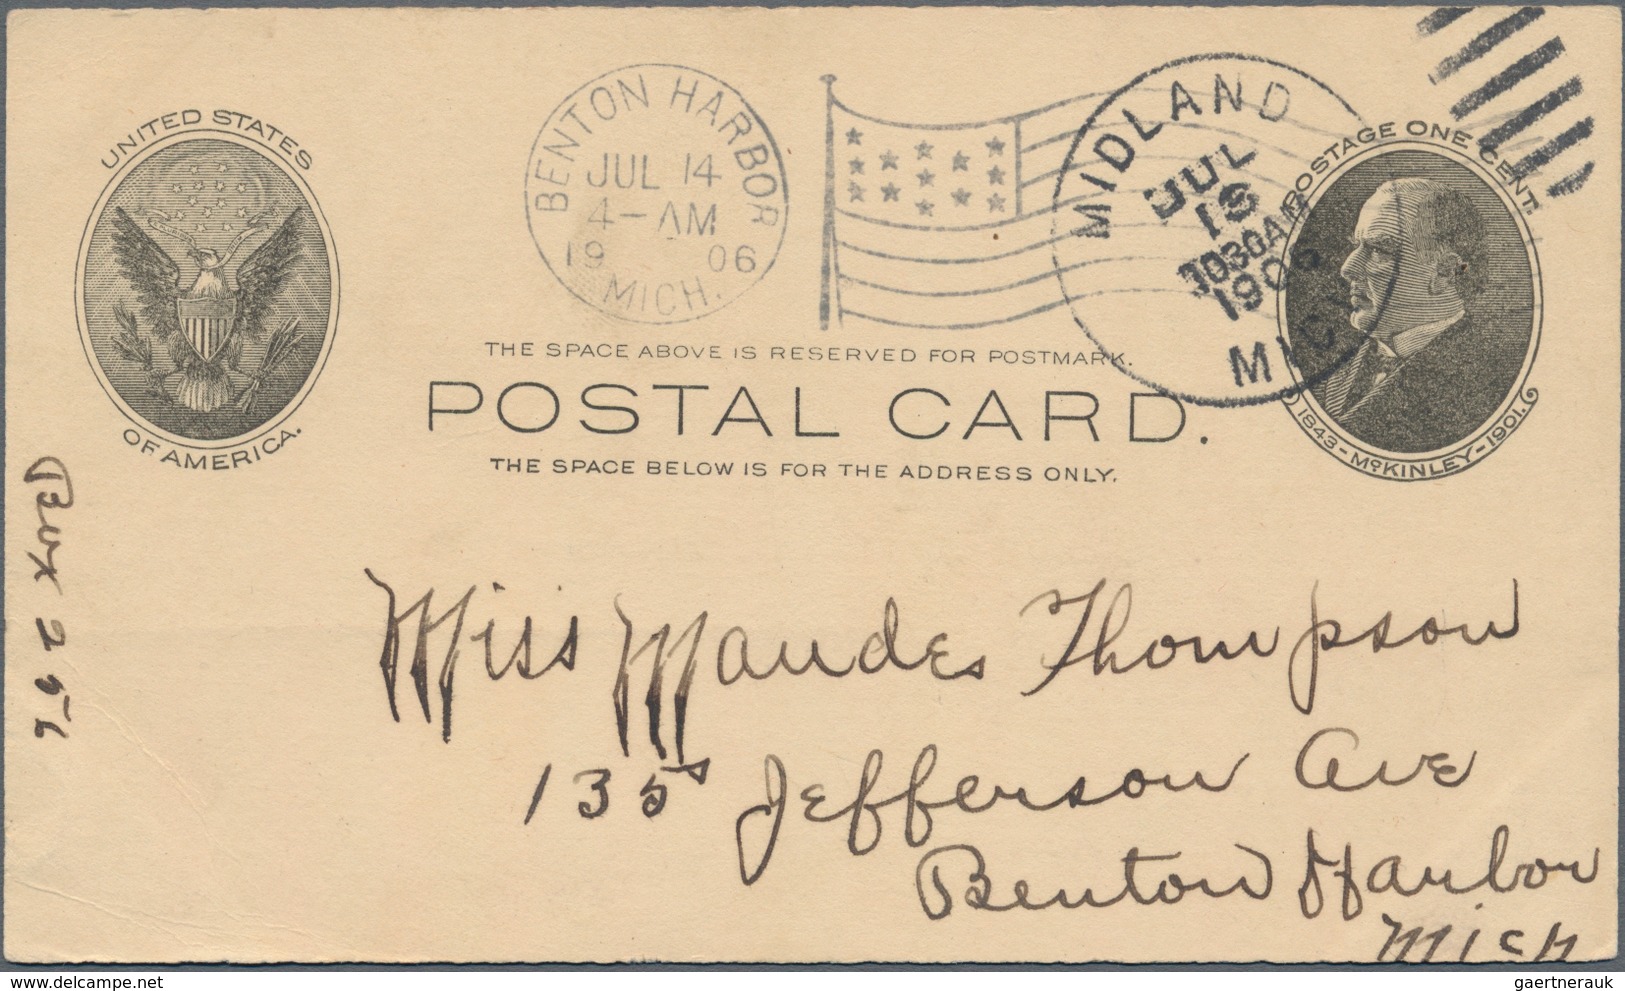 UNITED STATES
OF AMERICA.
BENTON HARBOR
JUL 14
4-AM
19 06
MICH.
MIDLAND
JUL
16
1030AM
1906
MICH
POSTAGE ONE CENT.
1843-McKINLEY-1901.
THE SPACE ABOVE IS RESERVED FOR POSTMARK.
POSTAL CARD.
THE SPACE BELOW IS FOR THE ADDRESS ONLY.
Box 256
Miss Maude Thompson
135 Jefferson Ave
Benton Harbor
Mich
gaertnerauk